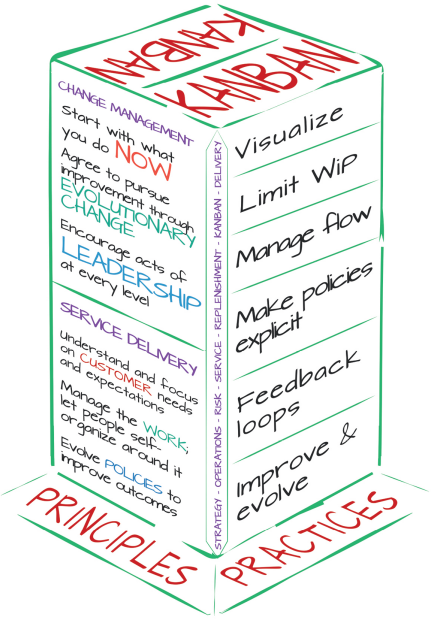 KANBAN
KANBAN
CHANGE MANAGEMENT
Start with what
you do NOW
Agree to pursue
improvement through
EVOLUTIONARY
CHANGE
Encourage acts of
LEADERSHIP
at every level
SERVICE DELIVERY
Understand and focus
on CUSTOMER needs
and expectations
Manage the WORK;
let people self-
organize around it
Evolve POLICIES to
improve outcomes
STRATEGY - OPERATIONS - RISK - SERVICE - REPLENISHMENT - KANBAN - DELIVERY
Visualize
Limit WiP
Manage flow
Make policies
explicit
Feedback
loops
Improve &
evolve
PRINCIPLES
PRACTICES